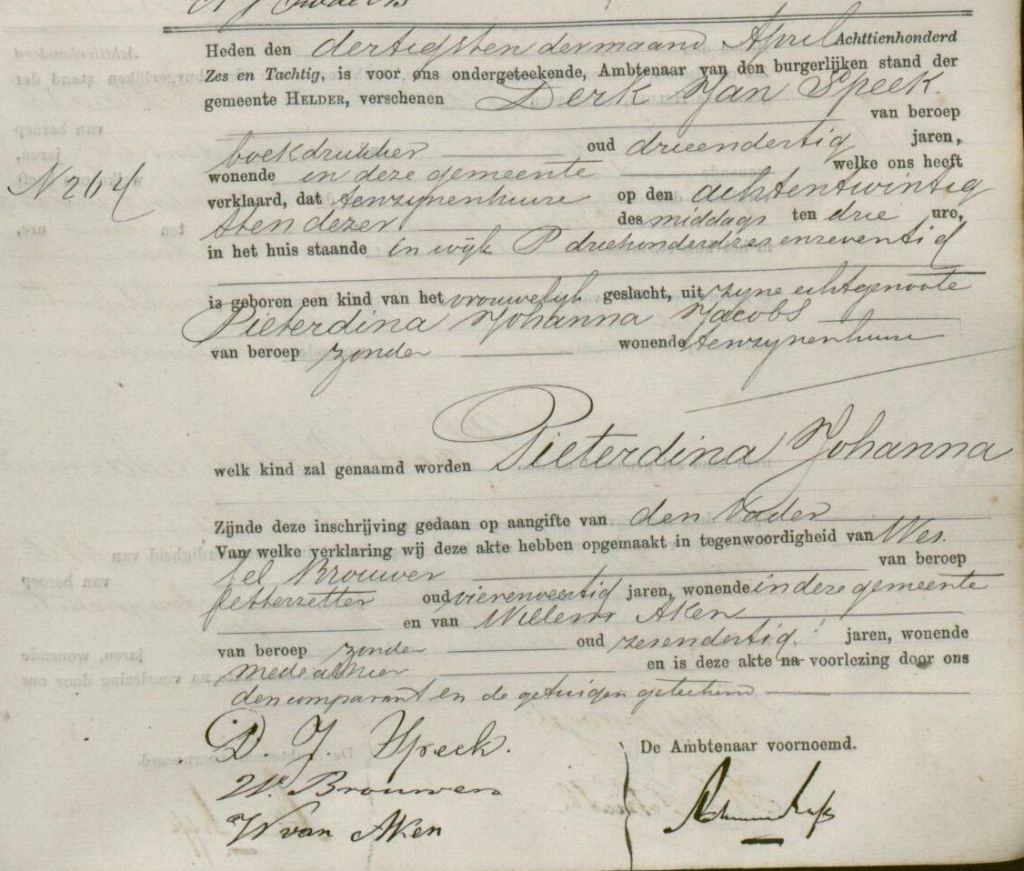 Heden den dertigsten der maand April Achttienhonderd
Zes en Tachtig, is voor ons ondergeteekende, Ambtenaar van den burgerlijken stand der
gemeente HELDER, verschenen Derk Jan Speek
van beroep
boekdrukker oud drieendertig jaren,
wonende in deze gemeente welke ons heeft
No 264
verklaard, dat tenzijnenhuize op den achtentwintig
sten dezer des middags ten drie ure,
in het huis staande in wijk P driehonderdzesenzeventig
is geboren een kind van het vrouwelijk geslacht, uit zijne echtgenoote
Pieterdina Johanna Jacobs
van beroep zonder wonende tenzijnenhuize
welk kind zal genaamd worden Pieterdina Johanna
Zijnde deze inschrijving gedaan op aangifte van den Vader
Van welke verklaring wij deze akte hebben opgemaakt in tegenwoordigheid van Wes
sel Brouwer van beroep
letterzetter oud vierenveertig jaren, wonende in deze gemeente
en van Willem Aken
van beroep zonder oud zesendertig jaren, wonende
mede alhier en is deze akte na voorlezing door ons
den comparant en de getuigen geteekend
D. J. Speek.
De Ambtenaar voornoemd.
W. Brouwer
W van Aken